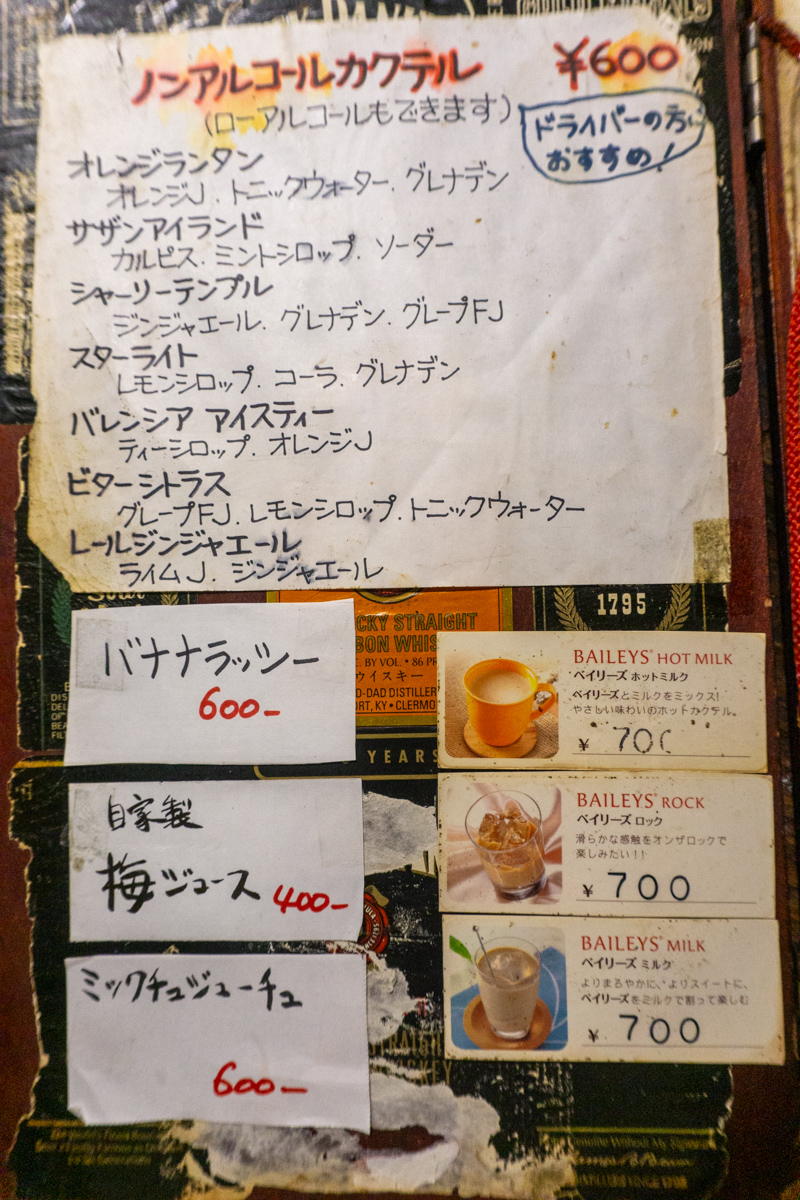 ノンアルコールカクテル ¥600
(ローアルコールもできます)
ドライバーの方に
おすすめ!
オレンジランタン
オレンジJ. トニックウォーター. グレナデン
サザンアイランド
カルピス. ミントシロップ. ソーダー
シャーリーテンプル
ジンジャエール. グレナデン. グレープFJ
スターライト
レモンシロップ. コーラ. グレナデン
バレンシア アイスティー
ティーシロップ. オレンジJ
ビターシトラス
グレープFJ. レモンシロップ. トニックウォーター
レールジンジャエール
ライムJ. ジンジャエール
1795
CKY STRAIGHT
BON WHIS
. BY VOL. • 86 PR
ウイスキー
O-DAD DISTILLER
ORT, KY • CLERMO
YEARS
バナナラッシー
600-
自家製
梅ジュース 400-
ミックチュジューチュ
600-
BAILEYS® HOT MILK
ベイリーズ ホットミルク
ベイリーズとミルクをミックス!
やさしい味わいのホットカクテル。
¥ 700
BAILEYS® ROCK
ベイリーズ ロック
滑らかな感触をオンザロックで
楽しみたい!!
¥ 700
BAILEYS® MILK
ベイリーズ ミルク
よりまろやかに、よりスイートに、
ベイリーズをミルクで割って楽しむ
¥ 700